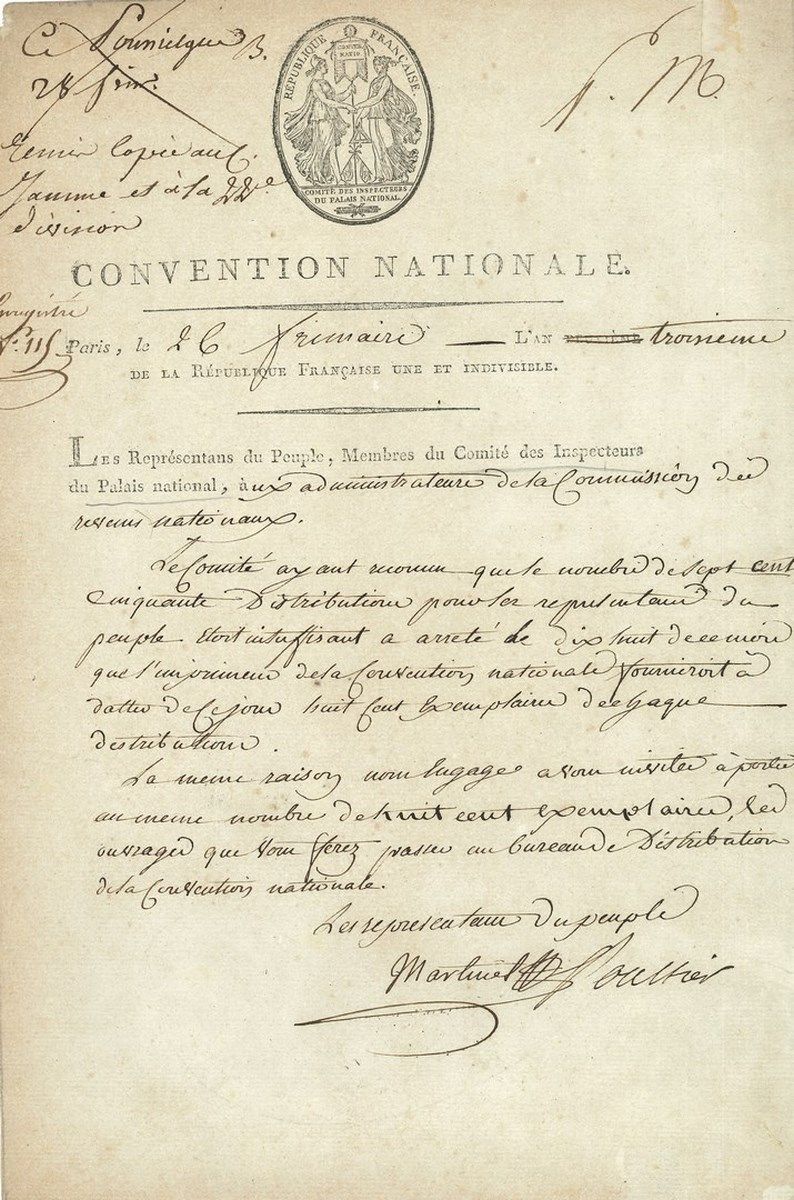 Ce
B.
28 frim.re
remis Copie au C.
Jamme et à la 22e
division
P. M.
RÉPUBLIQUE FRANÇAISE.
CONVEN NATIO
COMITÉ DES INSPECTEURS
DU PALAIS NATIONAL.
CONVENTION NATIONALE.
Enregistré
N.o 115
Paris, le 26 frimaire — L'AN DEUXIÈME troisieme
DE LA RÉPUBLIQUE FRANÇAISE UNE ET INDIVISIBLE.
LES Représentans du Peuple, Membres du Comité des Inspecteurs
du Palais national, aux administrateurs de la Commission des
revenus nationaux.
Le Comité ayant reconnu que le nombre de sept cent
Cinquante Distributions pour les representans du
peuple etoit insuffisant a arreté le dix huit decembre
que l'imprimeur de la Convention nationale fourniroit à
datter de Ce jour huit Cent Exemplaires de chaque
distribution.
La meme raison nous Engage a vous inviter à porter
au meme nombre de huit cent exemplaires, les
ouvrages que vous ferez passer au bureau de Distribution
de la Convention nationale.
Les representans du peuple
Martinel Poultier